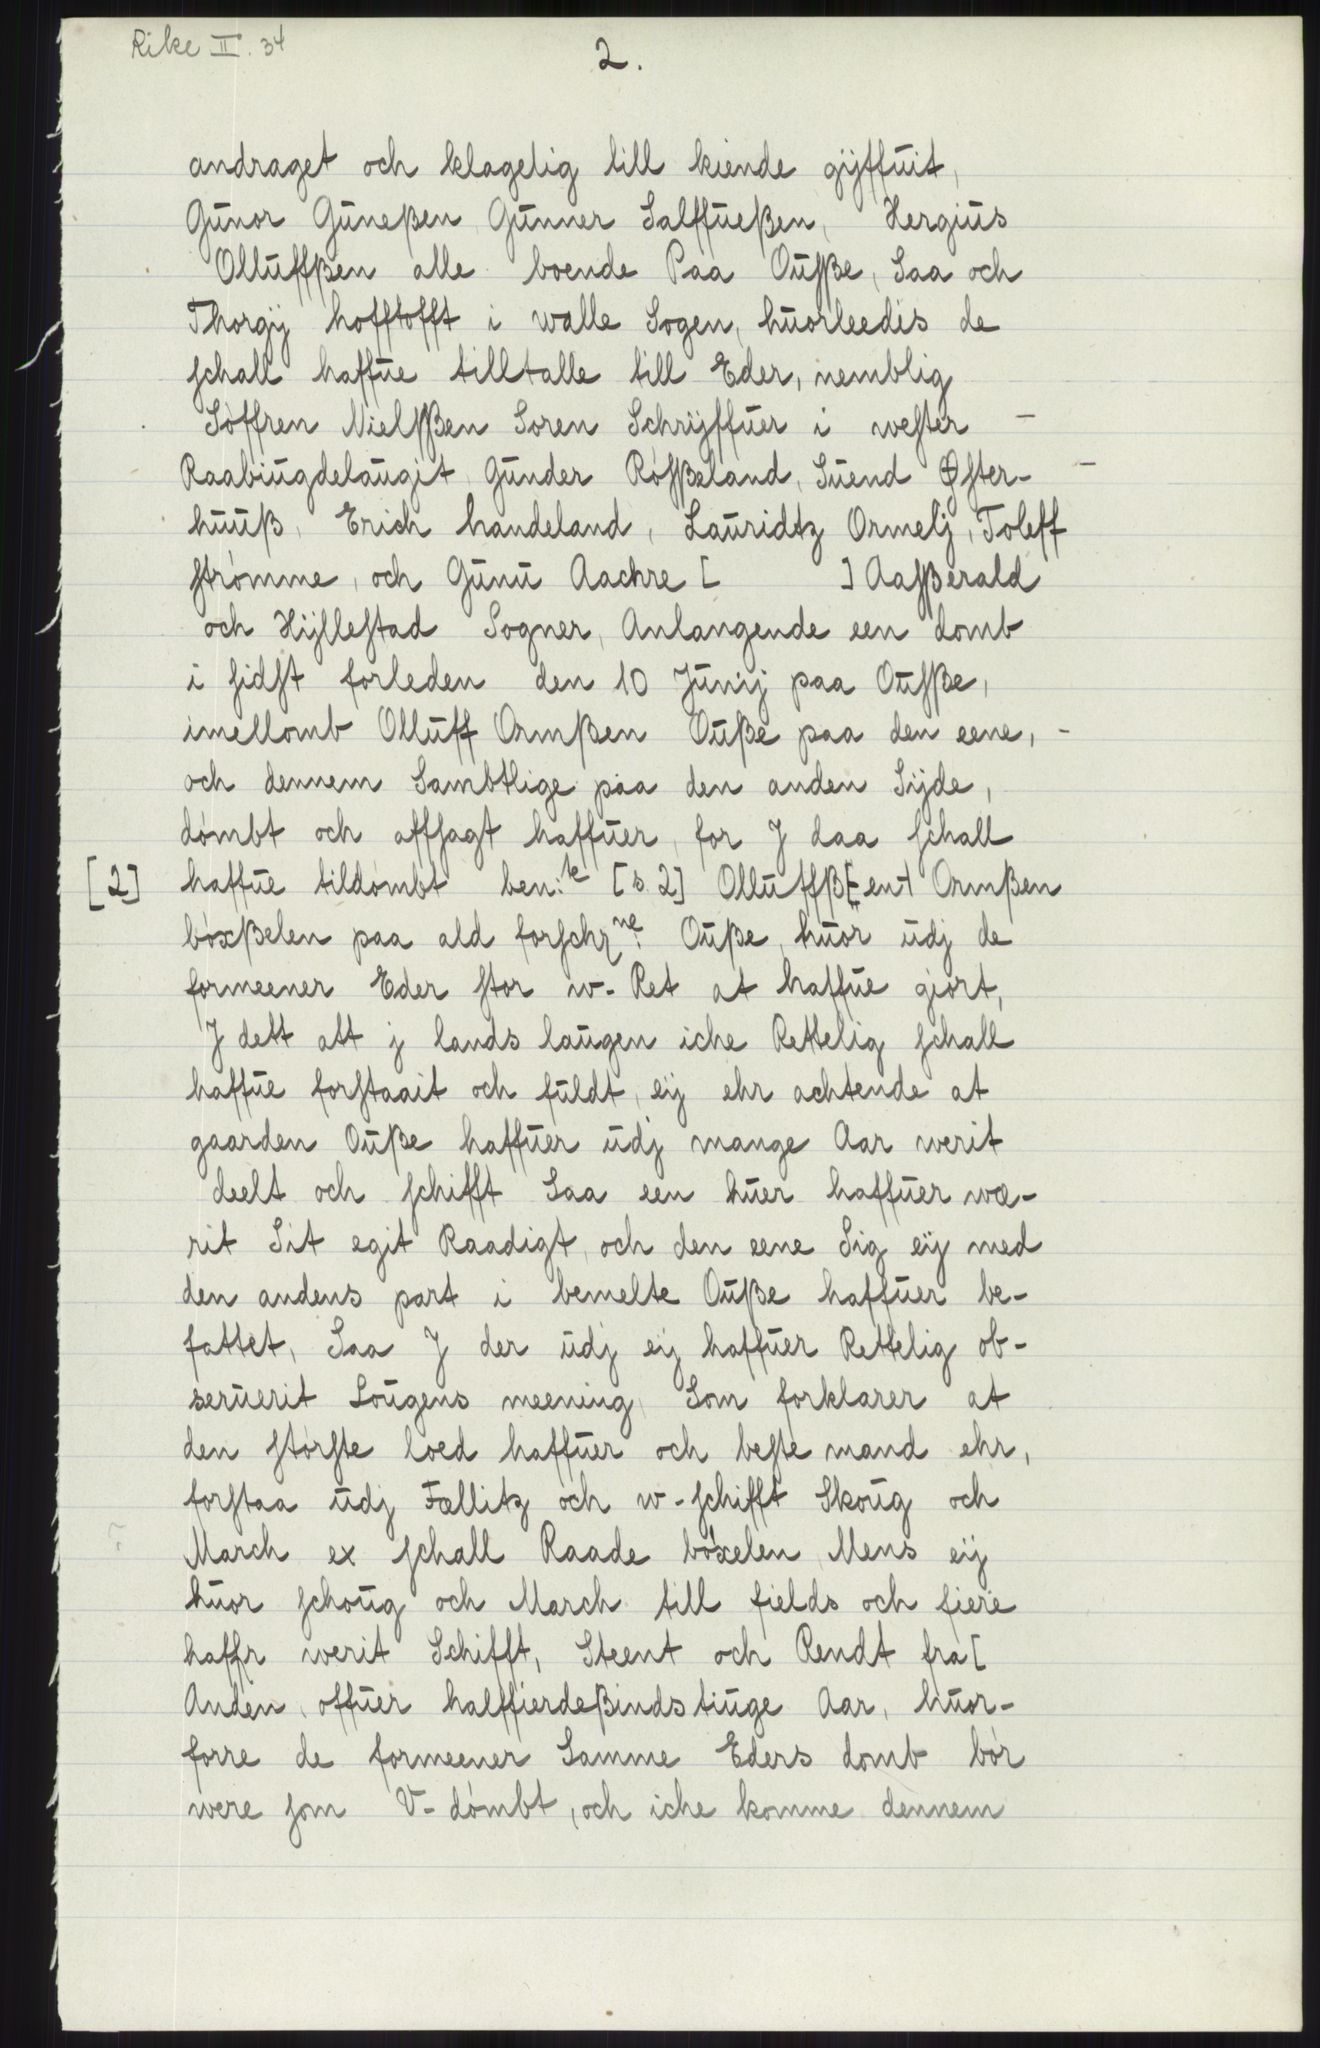 Rike II. 34
2.
andraget och klagelig till kiende gijffuit,
Gunor Guneßen Gunner Salffueßen, Hergius
Olluffßen alle boende Paa Ousße, Saa och
Thorgij hofftofft i walle Sogen, huorleedis de
schall haffue tilltalle till Eder, nemblig
Søffren Nielsßen Soren Schrijffuer i wester –
Raabiugdelaugit, Gunder Røsßeland, Suend Øster- –
huuß, Erich handeland, Lauridtz Ormelj, Toleff
strømme, och Gunu Aachre [ ] Aasßerald
och Hijllestad Sogner, Anlangende een domb
i sidst forleden den 10 Junij paa Ousße,
imellomb Olluff Ormßen Ouße paa den eene, –
och dennem Sambtlige paa den anden Sijde,
dømbt och affsagt haffuer, for J daa schall
[2] haffue tildømbt ben:te [s. 2] Olluffß[en] Ormßen
bøxßelen paa ald forschrne: Ouße, huor udj de
formeener Eder stor w-Ret at haffue giort,
J dett att j lands laugen iche Rettelig schall
haffue forstaait och fuldt, eij ehr achtende at
gaarden Ouße haffuer udj mange Aar werit
deelt och schifft Saa een huer haffuer wæ-
rit Sit egit Raadigt, och den eene Sig eij med
den andens part i bemelte Ouße haffuer be-
fattet, Saa J der udj eij haffuer Rettelig ob-
seruerit Lougens meening, Som forklarer at
den største loed haffuer och beste mand ehr,
forstaa udj Fællitz och w-schifft Skoug och
March ex schall Raade bøxelen, Mens eij
huor schoug och March till fields och fiere
haffr werit Schifft, Steent och Rendt fra [
Anden, offuer halffierdeßindstiuge Aar, huor-
forre de formeener Samme Eders domb bør
were som V-dømbt, och iche komme dennem